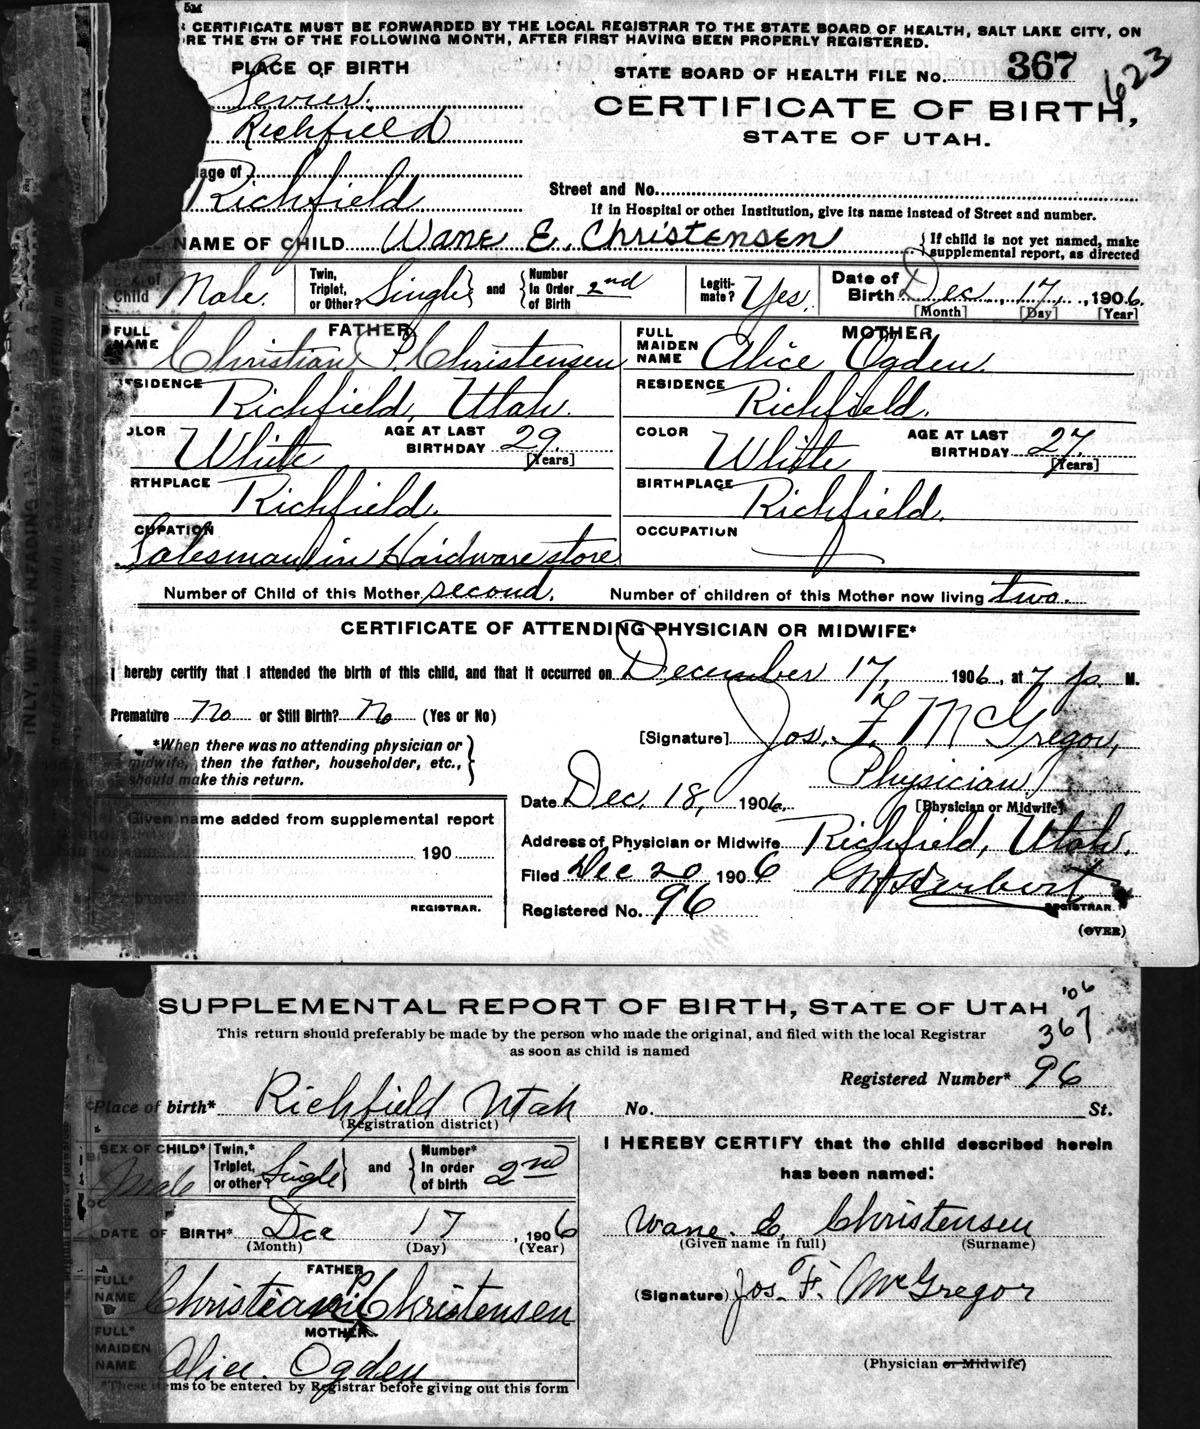 5M
CERTIFICATE MUST BE FORWARDED BY THE LOCAL REGISTRAR TO THE STATE BOARD OF HEALTH, SALT LAKE CITY, ON
RE THE 5TH OF THE FOLLOWING MONTH, AFTER FIRST HAVING BEEN PROPERLY REGISTERED.
PLACE OF BIRTH
STATE BOARD OF HEALTH FILE No. 367 623
Sevier.
CERTIFICATE OF BIRTH,
Richfield
STATE OF UTAH.
lage of
Richfield
Street and No.
If in Hospital or other Institution, give its name instead of Street and number.
NAME OF CHILD Wane E. Christensen { If child is not yet named, make supplemental report, as directed
of Child Male. Twin, Triplet, or Other? Single } and { Number In Order of Birth 2nd Legiti-mate? Yes. Date of Birth Dec., 17, 1906.
[Month] [Day] [Year]
FATHER MOTHER
FULL NAME Christian P. Christensen FULL MAIDEN NAME Alice Ogden.
RESIDENCE Richfield, Utah. RESIDENCE Richfield.
OLOR White AGE AT LAST BIRTHDAY 29. [Years] COLOR White AGE AT LAST BIRTHDAY 27. [Years]
RTHPLACE Richfield. BIRTHPLACE Richfield.
CUPATION Salesman in Hardware store OCCUPATION
Number of Child of this Mother second. Number of children of this Mother now living two.
CERTIFICATE OF ATTENDING PHYSICIAN OR MIDWIFE*
I hereby certify that I attended the birth of this child, and that it occurred on December 17, 1906, at 7 p. M.
Premature No or Still Birth? No (Yes or No)
[Signature] Jos. F. McGregor,
*When there was no attending physician or
midwife, then the father, householder, etc.,
should make this return.
Physician
Date Dec. 18, 1906. [Physician or Midwife]
Given name added from supplemental report
Address of Physician or Midwife Richfield, Utah.
190
Filed Dec 20 1906
REGISTRAR.
REGISTRAR
Registered No. 96
(OVER)
SUPPLEMENTAL REPORT OF BIRTH, STATE OF UTAH '06
This return should preferably be made by the person who made the original, and filed with the local Registrar
367
as soon as child is named
Registered Number* 96
Place of birth* Richfield Utah No. St.
(Registration district)
SEX OF CHILD* Male Twin,* Triplet, or other? Single } and { Number* In order of birth 2nd
I HEREBY CERTIFY that the child described herein
has been named:
DATE OF BIRTH* Dec 17, 1906
(Month) (Day) (Year)
Wane. E. Christensen
(Given name in full) (Surname)
FATHER
FULL* NAME Christian P Christensen
(Signature) Jos. F. McGregor
MOTHER
FULL* MAIDEN NAME Alice. Ogden
(Physician or Midwife)
*These items to be entered by Registrar before giving out this form